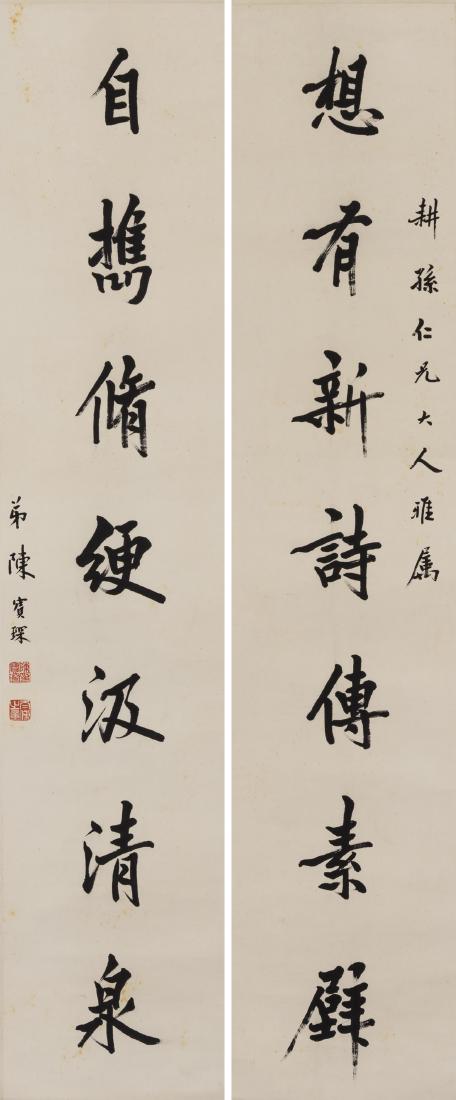 耕孫仁兄大人雅属
想有新詩傳素壁
自擕脩綆汲清泉
弟陳寶琛